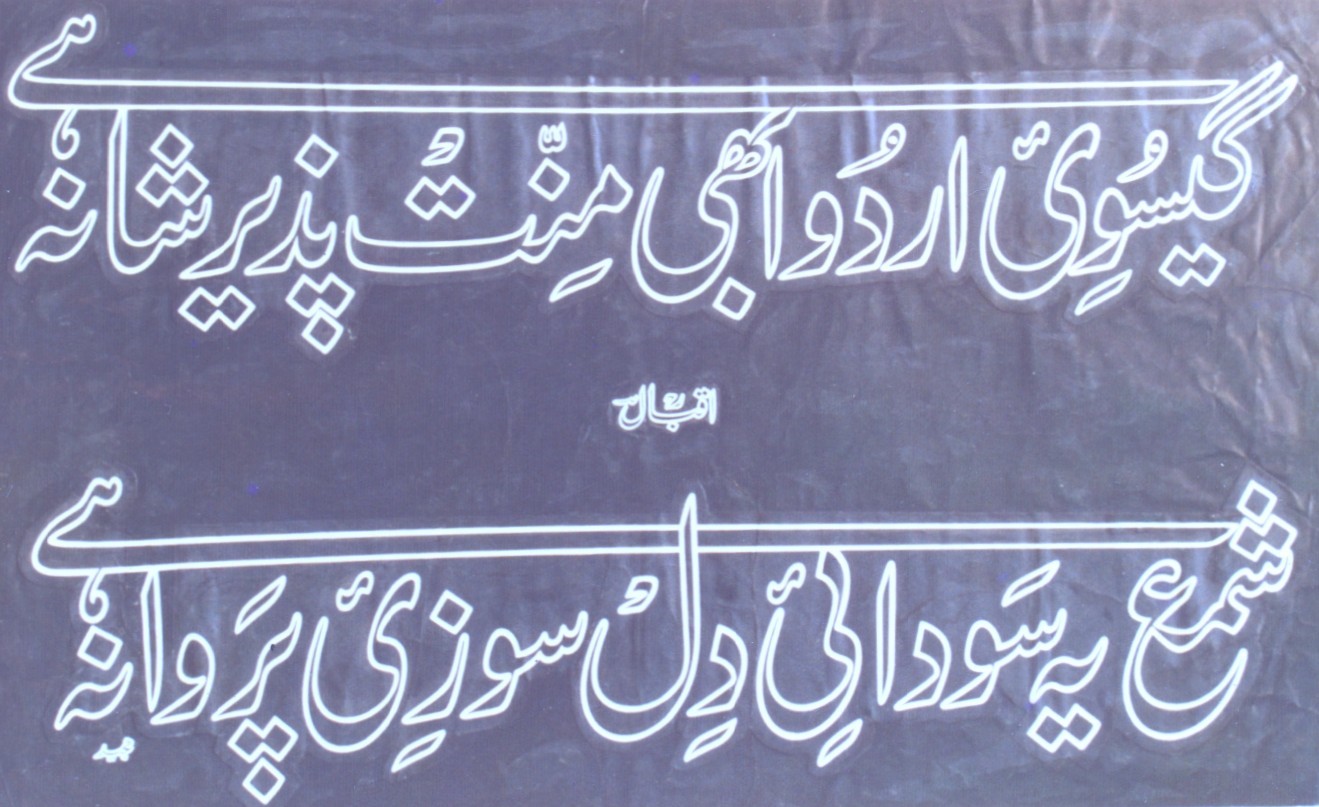 گیسُوئ اردُو ابھی مِنّت پذیر شانہ ہے
اقبالؒ
شمع یہ سَودائیِ دِل سوزِئ پَروانہ ہے